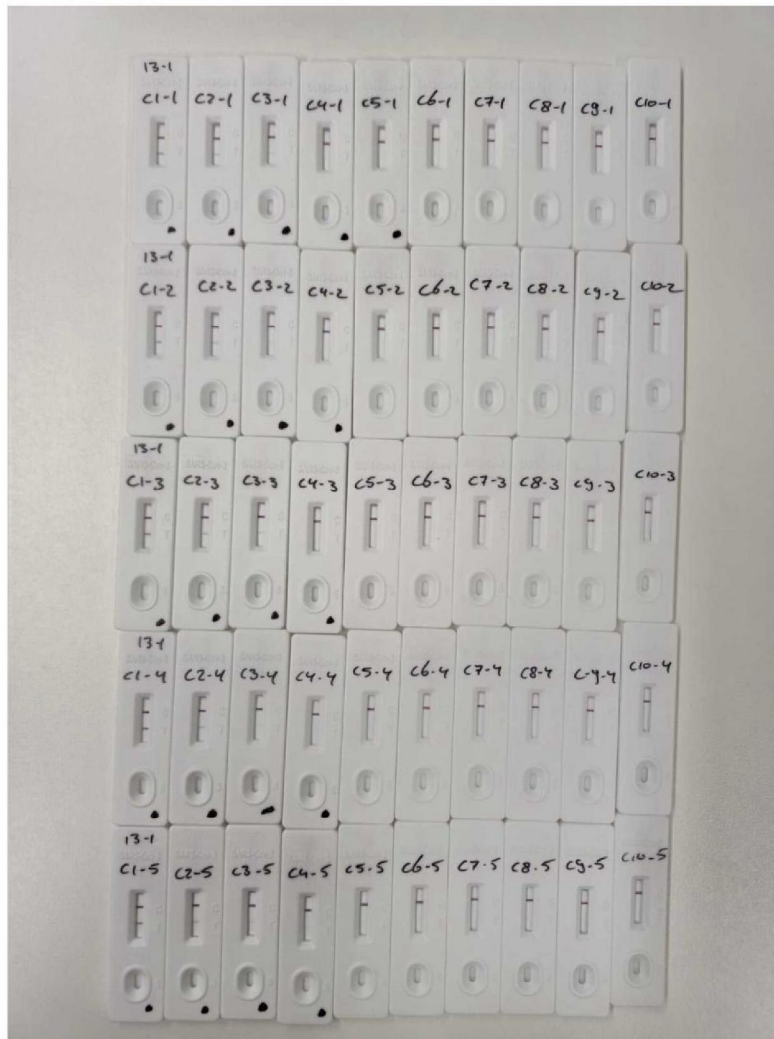 13-1
C1-1 C2-1 C3-1 C4-1 C5-1 C6-1 C7-1 C8-1 C9-1 C10-1
13-1
C1-2 C2-2 C3-2 C4-2 C5-2 C6-2 C7-2 C8-2 C9-2 C10-2
13-1
C1-3 C2-3 C3-3 C4-3 C5-3 C6-3 C7-3 C8-3 C9-3 C10-3
13-1
C1-4 C2-4 C3-4 C4-4 C5-4 C6-4 C7-4 C8-4 C-9-4 C10-4
13-1
C1-5 C2-5 C3-5 C4-5 C5-5 C6-5 C7-5 C8-5 C9-5 C10-5